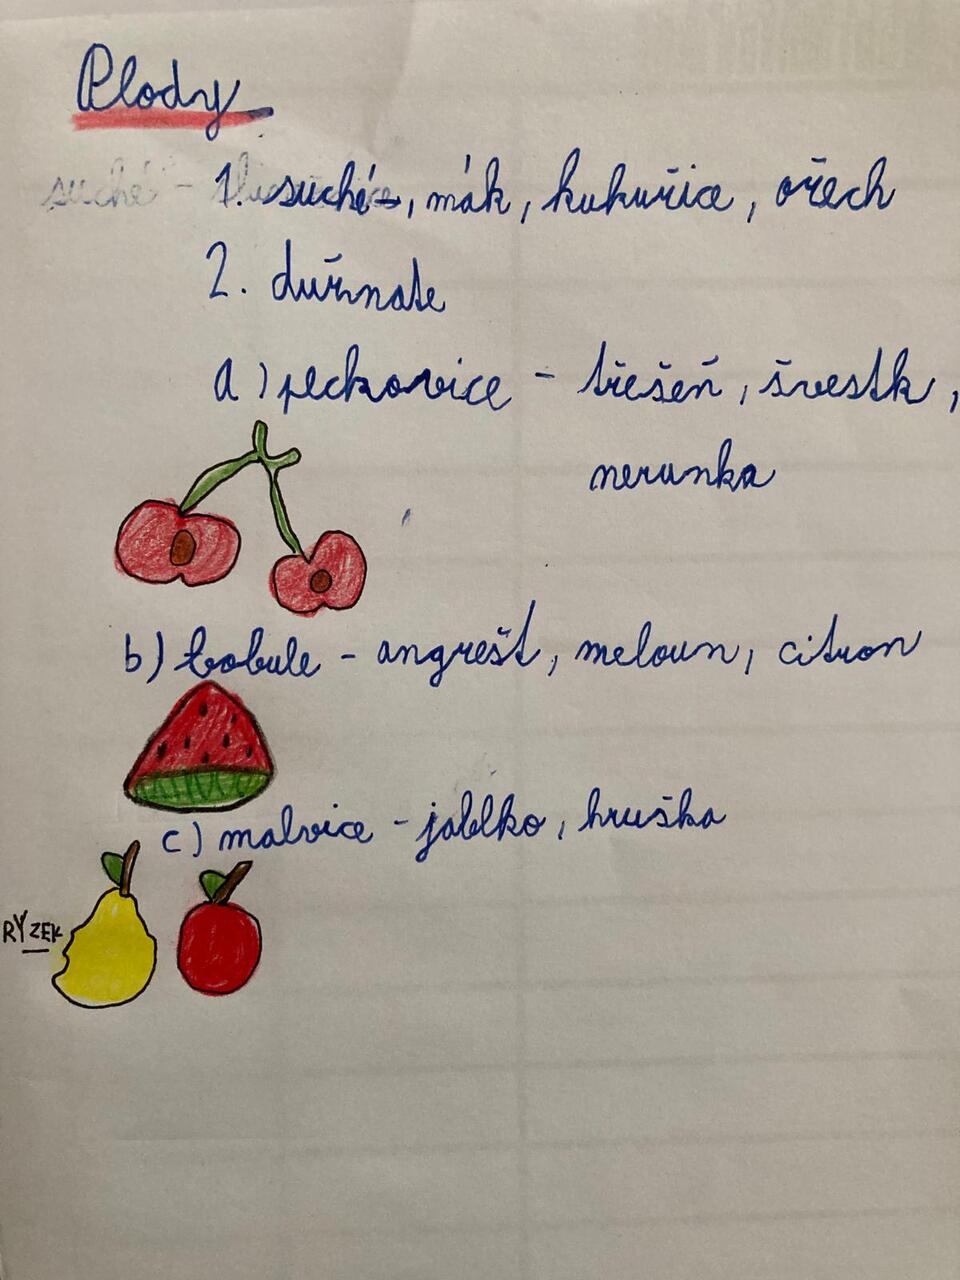 Plody
suché - 1. suché -, mák, kukuřice, ořech
2. dužnate
a) peckovice - třešeň, švestk,
nerunka
b) bobule - angrešt, meloun, citron
c) malvice - jablko, hruška
RYZEK